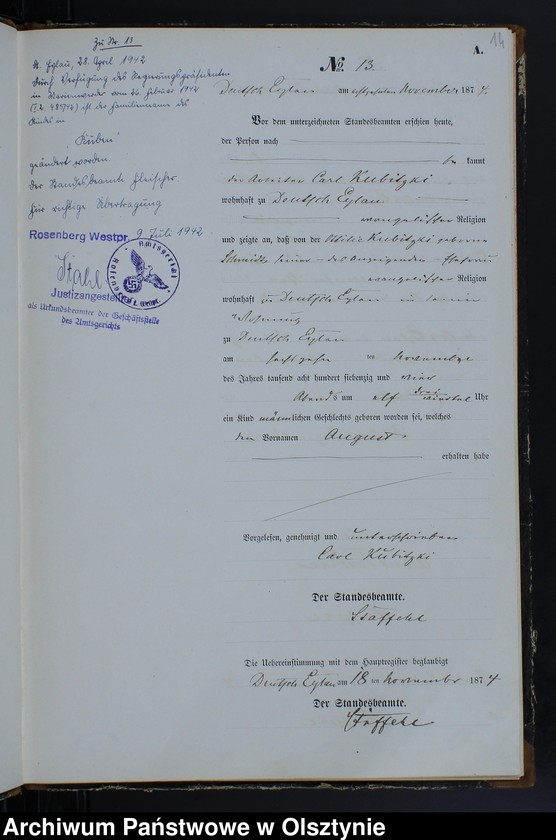 Zu Nr. 13
Dt. Eylau, 28. April 1942
Durch Verfügung des Regierungspräsidenten
in Marienwerder vom 26. Februar 1942
ist der Familienname des
Kindes in
"Küben"
geändert worden.
Der Standesbeamte Fleischer.
Für richtige Übertragung
Rosenberg Westpr. 9. Juli 1942
Stahl
Justizangestellter
als Urkundsbeamter der Geschäftsstelle
des Amtsgerichts
14
A.
No. 13.
Deutsch Eylau am achtzehnten November 1874.
Vor dem unterzeichneten Standesbeamten erschien heute,
der Person nach
be kannt
der Arbeiter Carl Kubitzki
wohnhaft zu Deutsch Eylau
evangelischer Religion
und zeigte an, daß von der Ottilie Kubitzki geborene
Schmidt seiner des Anzeigenden Ehefrau
evangelischer Religion
wohnhaft zu Deutsch Eylau in seiner
Wohnung
zu Deutsch Eylau
am sechszehn ten November
des Jahres tausend acht hundert siebenzig und vier
Abends um elf drei viertel Uhr
ein Kind männlichen Geschlechts geboren worden sei, welches
den Vornamen August
erhalten habe
Vorgelesen, genehmigt und unterschrieben
Carl Kubitzki
Der Standesbeamte.
Staffehl
Die Uebereinstimmung mit dem Hauptregister beglaubigt
Deutsch Eylau am 18 ten November 1874
Der Standesbeamte.
Staffehl
Archiwum Państwowe w Olsztynie